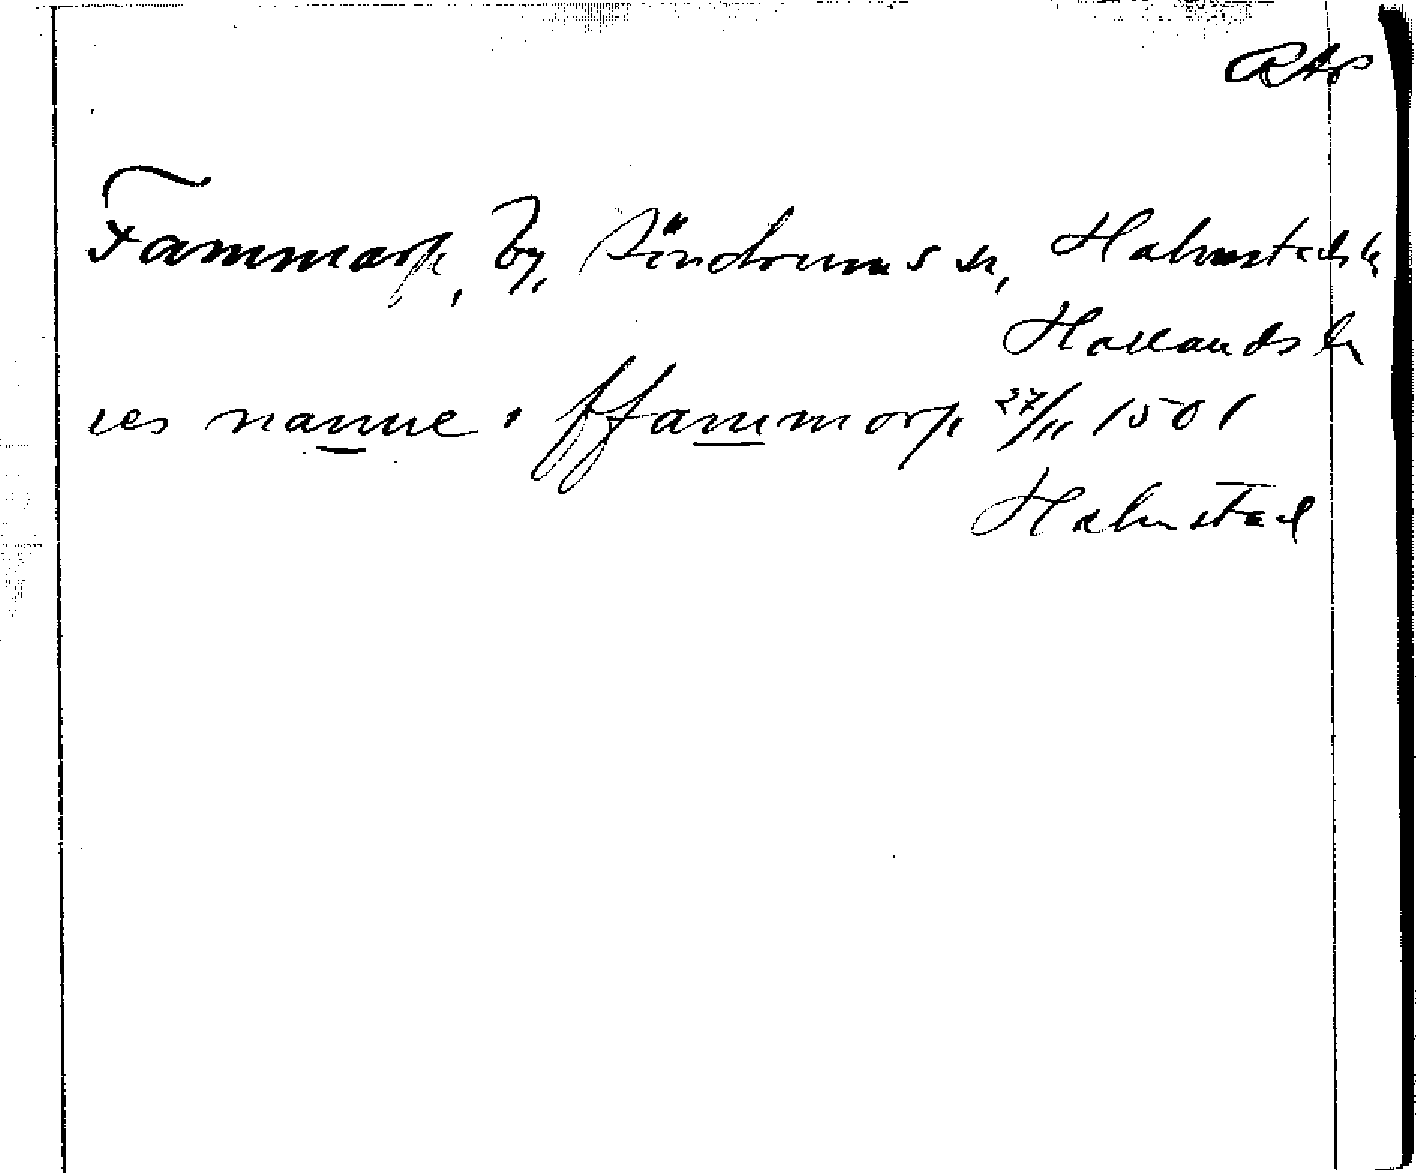 RAP
Fammarp, by, Söndrums sn, Halmstads h
Hallands l
ies nanne i ffammorp 27/11 1501
Halmstad